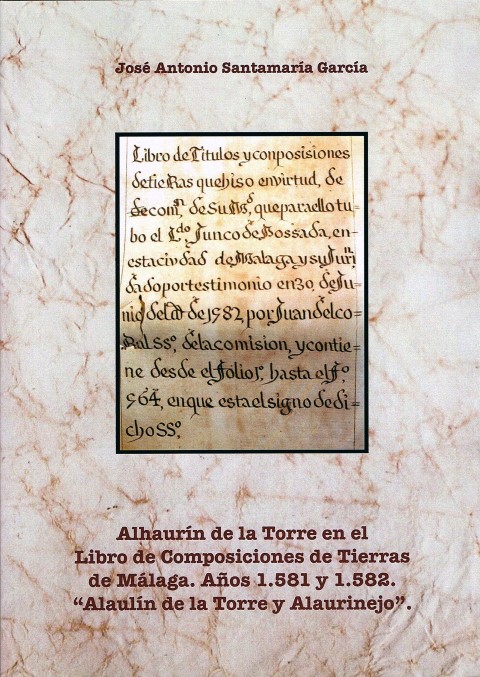 José Antonio Santamaría García
Libro de Titulos y conposisiones
de tieRas que hiso en virtud, de
de comⁿ. de Su Mᵍ. que para ello tu=
bo el Lᵈᵒ. Junco de Possada, en=
esta civdad de Malaga y su Juriⁿ
dado por testimonio en 30, de Ju=
nio del de 1582, por Juan del co=
Ral SSº. de la comision, y contie=
ne desde el folio 1º, hasta el fº.
964, en que esta el signo de di=
cho SSº.
Alhaurín de la Torre en el
Libro de Composiciones de Tierras
de Málaga. Años 1.581 y 1.582.
“Alaulín de la Torre y Alaurinejo”.